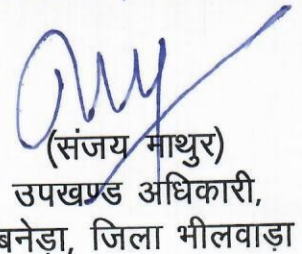 (संजय माथुर)
उपखण्ड अधिकारी,
बनेडा, जिला भीलवाड़ा